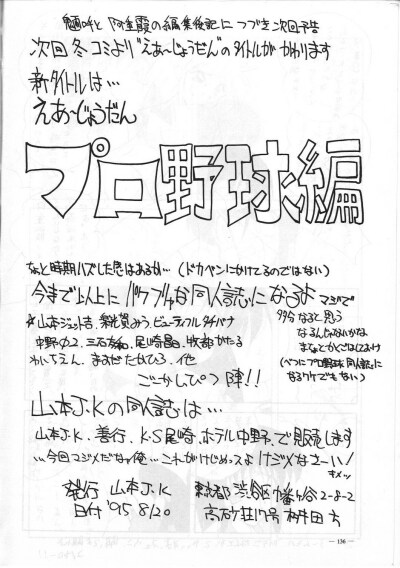 魎呼と阿重霞の編集後記につづき次回予告
次回冬コミより"えあ〜じょうだん"のタイトルがかわります
新タイトルは…
えあ〜じょうだん
プロ野球編
なんと時期ハズレした感はあるが… (ドカベンにかけてるのではない)
今まで以上にパワフルな同人誌になるよ マジで
☆山本ジェット吉、雑賀みう、ビューティフルタチバナ
99分なると思う
なるんじゃないかな
まちょとかくごはしておけ
(べつにプロ野球同人誌に
なるワケでもない)
中野カ2、三石 、尾崎昌日、牧都かたる
わいちえん、まずだたかひろ、他
ごーかしっぴつ陣!!
山本J.Kの同人誌は…
山本J.K、善行、K.S尾崎、ホテル中野、で販売します
…今回マジメだなァ俺…これがけじめっスよけじめなさーい!
オメッ
発行 山本J.K 東京都渋谷区幡ヶ谷2-8-2
日付 '95 8/20 高石荘17号 桝田方
— 136 —